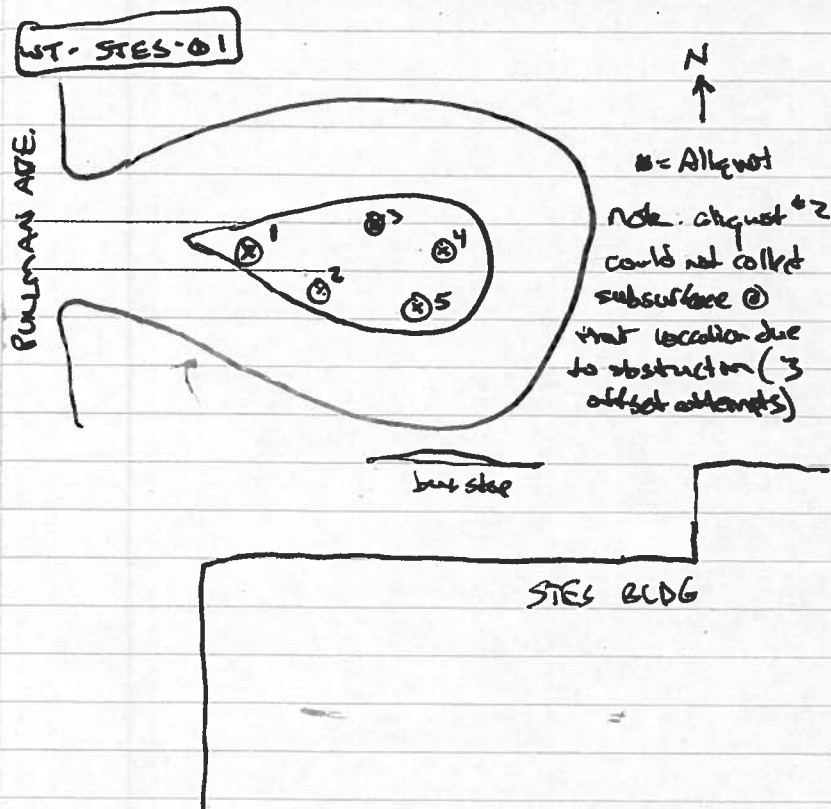 WT-STES-01
N
PULLMAN AVE.
⊗ = Aliquot
note. aliquot #2
could not collect
subsurface @
that location due
to obstruction (3
offset attempts)
1
3
4
2
5
bus stop
STES BLDG